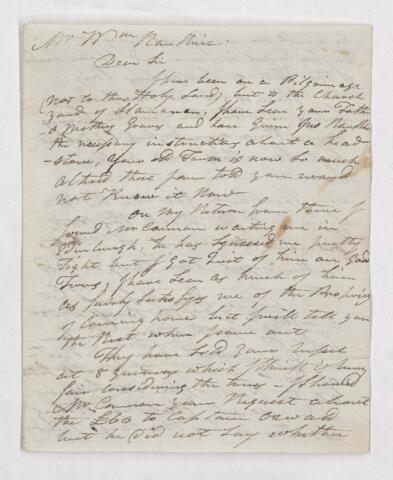 Mr Wm Rankine
Dear Sir
I have been on a Pilgrimage
(Not to the Holy Land), but to the Church
yard of Slamanan, I have Seen your Father
& Mothers Graves and have Given Jas Rankine
the necessary instructions about a head
-stone, Your old Farm is now So much
altered that you would
not Know it Now
On my Return from thence I
found Mr Conman waiting me in
Edinburgh, he has Squeesed me pretty
Tight but I Got Quit of him on Good
Terms, I have Seen as much of him
as fairly Satisfyes me of the
of Coming home but I will tell you
the Rest when I come out
They have Sold your
at 8 Guineas which I think is very
fair Considering the times - I Shewed
Mr Conman your Request about
the £60 to Captain Oswald
but he Did not Say whether